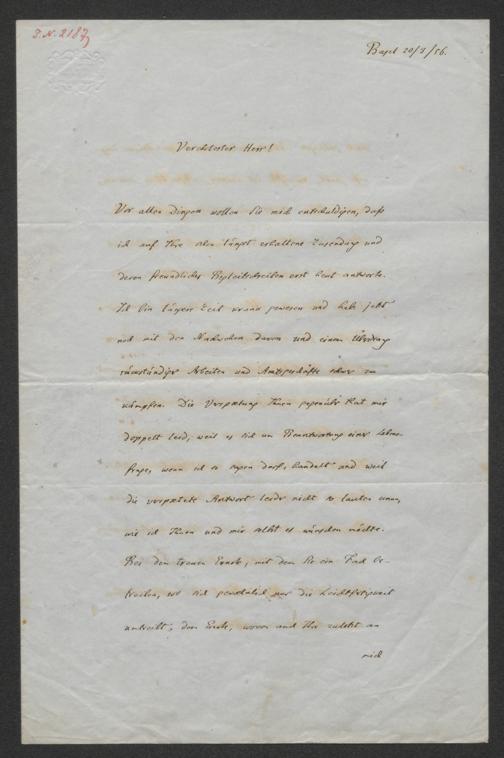 I.N. 2187
Basel 20/3/86.
Verehrtester Herr!
Vor allen Dingen wollen Sie mich entschuldigen, daß
ich auf Ihre schon längst erhaltene Zusendung und
deren freundliches Begleitschreiben erst heut antworte.
Ich bin längere Zeit krank gewesen und hab jetzt
noch mit den Nachwehen davon und einem Übertrag
rückständiger Arbeiten und Amtsgeschäfte schwer zu
kämpfen. Die Verspätung Ihnen gegenüber thut mir
doppelt leid, weil es sich um Beantwortung einer Lebens-
frage, wenn ich so sagen darf, handelt und weil
die verspätete Antwort leider nicht so lauten kann,
wie ich Ihnen und mir selbst es wünschen möchte.
Bei dem treuen Ernste, mit dem Sie ein Fach be-
treiben, wo sich gewöhnlich nur die Leichtfertigkeit
umtreibt, dem Ernste, wovon auch Ihr zuletzt an
mich